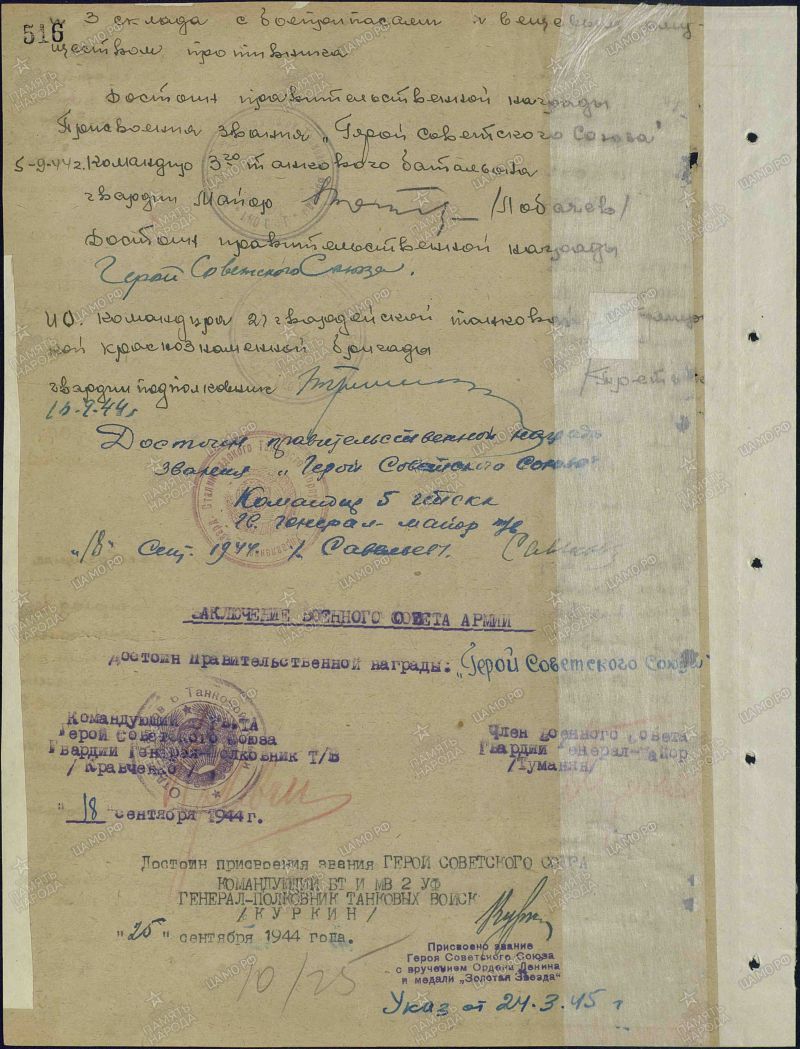 516
и 3 склада с боеприпасами и вещевым иму-
ществом противника
Достоин правительственной награды
Присвоения звания „Герой Советского Союза"
5-9-44г. Командир 3го танкового батальона
гвардии Майор /Лобачев/
Достоин правительственной награды
Герой Советского Союза.
ИО. командира 21 гвардейской танковой
кой краснознаменной бригады
гвардии подполковник
9.44г
Достоин правительственной награды
звания „Герой Советского Союза"
Командир 5 гтск
гв. генерал-майор т/в
„18" Сент. 1944г. /Савельев/.
ЗАКЛЮЧЕНИЕ ВОЕННОГО СОВЕТА АРМИИ
Достоин Правительственной награды: „Герой Советского Союза"
Командующий 6 ТА
Герой Советского Союза
Гвардии Генерал-Полковник Т/В
/Кравченко/
"18" сентября 1944г.
Член Военного Совета
Гвардии Генерал-Майор
/Туманян/
Достоин присвоения звания ГЕРОЙ СОВЕТСКОГО СОЮЗА
КОМАНДУЮЩИЙ БТ И МВ 2 УФ
ГЕНЕРАЛ-ПОЛКОВНИК ТАНКОВЫХ ВОЙСК
/КУРКИН/
"25" сентября 1944 года.
10/25
Присвоено звание
Героя Советского Союза
с вручением Ордена Ленина
и медали „Золотая Звезда"
Указ от 24.3.45 г
ПАМЯТЬ НАРОДА
ЦАМО.РФ